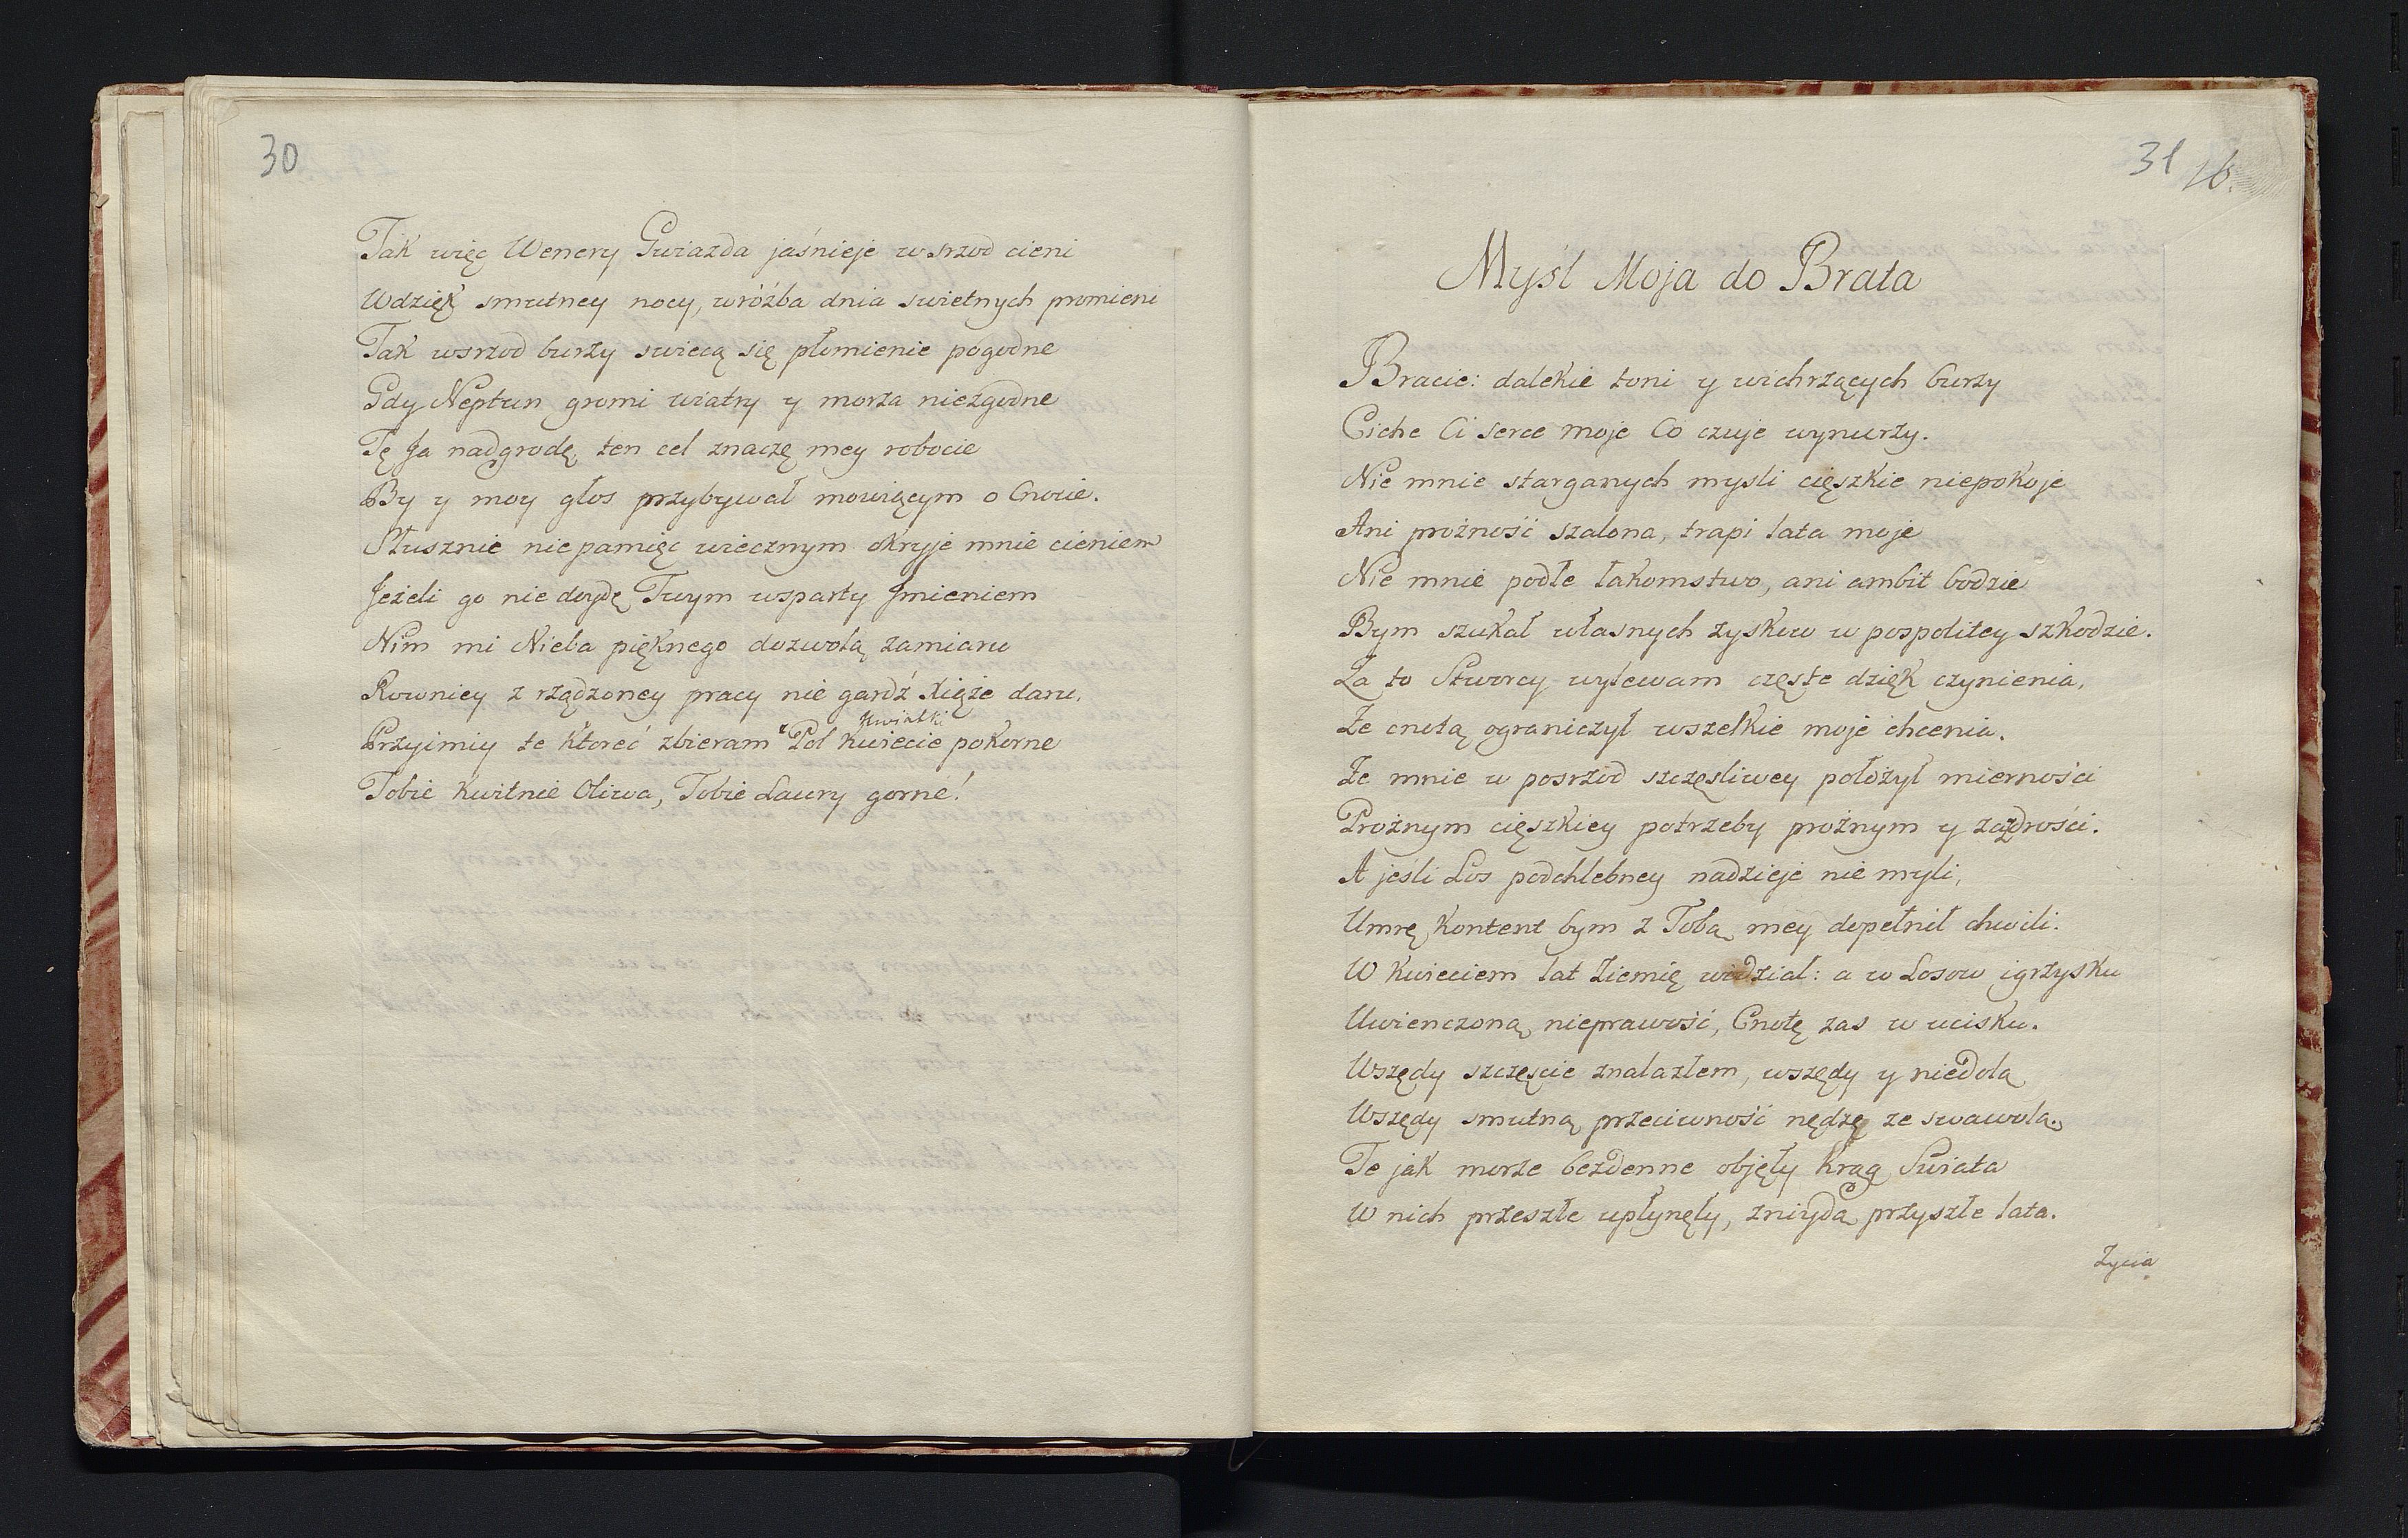 30
Tak więc Wenery Gwiazda jaśnieje wsrzod cieni
Wdzięk smutney nocy, wróżba dnia swietnych promieni
Tak wsrzod burzy swiecą się płomienie pogodne
Gdy Neptun gromi wiatry y morza niezgodne
Tę Ja nadgrodę, ten cel znaczę mey robocie
By y moy głos przybywał mowiącym o Cnocie.
Słusznie niepamięc wiecznym okryje mnie cieniem
Jeżeli go nie doydę Twym wsparty Jmieniem
Nim mi Nieba pięknego dozwolą zamiaru
Rowniey z rządzoney pracy nie gardź Xięże daru.
kwiatki
Przyimiy te ktoreć zbieram z Pol kwiecie pokorne
Tobie kwitnie Oliwa, Tobie Laury gorne!
31 16.
Myśl Moja do Brata
Bracie: dalekie toni y wichrzących burzy
Ciche Ci serce moje Co czuje wynurzy.
Nie mnie starganych mysli cięszkie niepokoje
Ani prożność szalona, trapi lata moje
Nie mnie podłe łakomstwo, ani ambit bodzie
Bym szukał własnych zyskow w pospolitey szkodzie.
Za to Stworcy wylewam częste dzięk czynienia,
Ze cnotą ograniczył wszelkie moje chcenia.
Ze mnie w posrzod szczęsliwey położył mierności
Prożnym cięszkiey potrzeby prożnym y zazdrości.
A jeśli Los podchlebney nadzieje nie myli,
Umrę kontent bym z Tobą mey dopełnił chwili.
W kwieciem lat Ziemię widział: a w Losow igrzysku
Uwienczoną nieprawość, Cnotę zas w ucisku.
Wszędy szczęscie znalazłem, wszędy y niedolą
Wszędy smutną przeciwność nędzę ze swawolą.
Te jak morze bezdenne objęły krąg Swiata
W nich przeszłe upłynęły, zniydą przyszłe lata.
Zycia